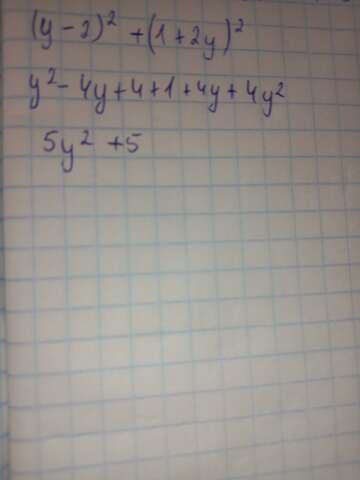 (y-2)² + (1+2y)²
y² - 4y + 4 + 1 + 4y + 4y²
5y² + 5